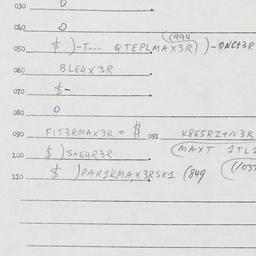 030 0
040 0
(1994
050 $ )-T--- QTEPLMAX3R) )-ONC+3R
060 BLE4X3R
070 $-
080 0
090 FIT3RMAX3R = $ 091 K8E5R2+N3R
100 $ )S+E4R3R (MAXT 1TL
110 $ )PAR1KMAX3R5K1 (849 (103